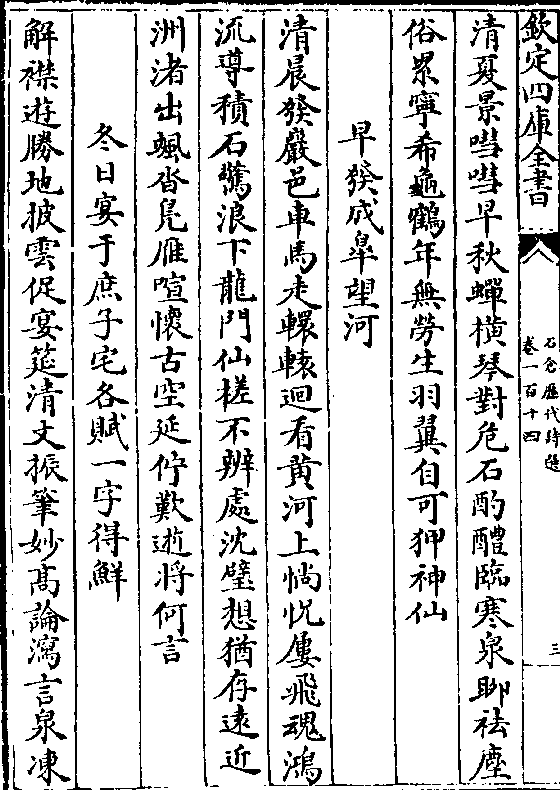 欽定四庫全書
石倉歷代詩選
卷一百十四
三
清夏景嘒嘒早秋蟬横琴對危石酌醴臨寒泉聊祛塵
俗累寧希龜鶴年無勞生羽翼自可狎神仙
早發成臯望河
清晨發巖邑車馬走轘轅迴看黄河上惝怳屢飛魂鴻
流導積石驚浪下龍門仙槎不辨處沈璧想猶存遠近
洲渚出颯沓鳬雁喧懷古空延佇歎逝將何言
冬日宴于庶子宅各賦一字得鮮
解襟遊勝地披雲促宴筵清文振筆妙高論瀉言泉凍